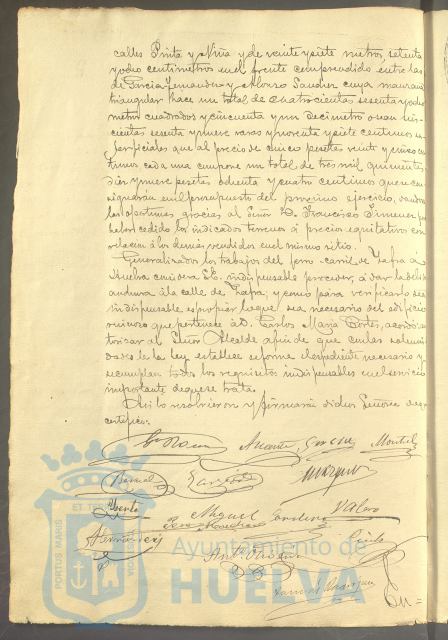 calles Pinta y Niña y de veinte y siete metros, setenta
y ocho centimetros en el frente comprendido entre las
de Garcia Fernandez y Alonso Sanchez cuya manzana
triangular hace un total de cuatrocientos sesenta y ocho
metros cuadrados y cincuenta y un decimetro o sean seis-
cientas sesenta y nueve varas y noventa y siete centimos su-
perficiales que al precio de cinco pesetas veinte y cinco cen-
timos cada una compone un total de tres mil quinientas
diez y nueve pesetas ochenta y cuatro centimos que se con-
signarán en el presupuesto del proximo ejercicio, dando
las oportunas gracias al Señor D. Francisco Jimenez por
haber cedido los indicados terrenos á precio equitativo con
relacion á los demás vendidos en el mismo sitio.
Generalizado los trabajos del ferro-carril de Zafra á
Huelva considera S.E. indispensable proceder á dar la debida
anchura á la calle de Zafra; y como para verificarlo sea
indispensable expropiar lo que sea necesario del edificio
ruinoso que pertenece á D. Carlos Maria Cortes, acordó au-
torizar al Señor Alcalde a fin de que con las solemni-
dades de la ley establece se forme el expediente necesario y
se cumplan todos los requisitos indispensables en el servicio
importante de que se trata.
Asi lo resolvieron y firmarán dichos Señores de que
certifico.
Garcia
Bernal Garrido Marquez
Miguel Valero
Hernandez
ET TERRAE
PORTUS MARIS
Ayuntamiento de
HUELVA